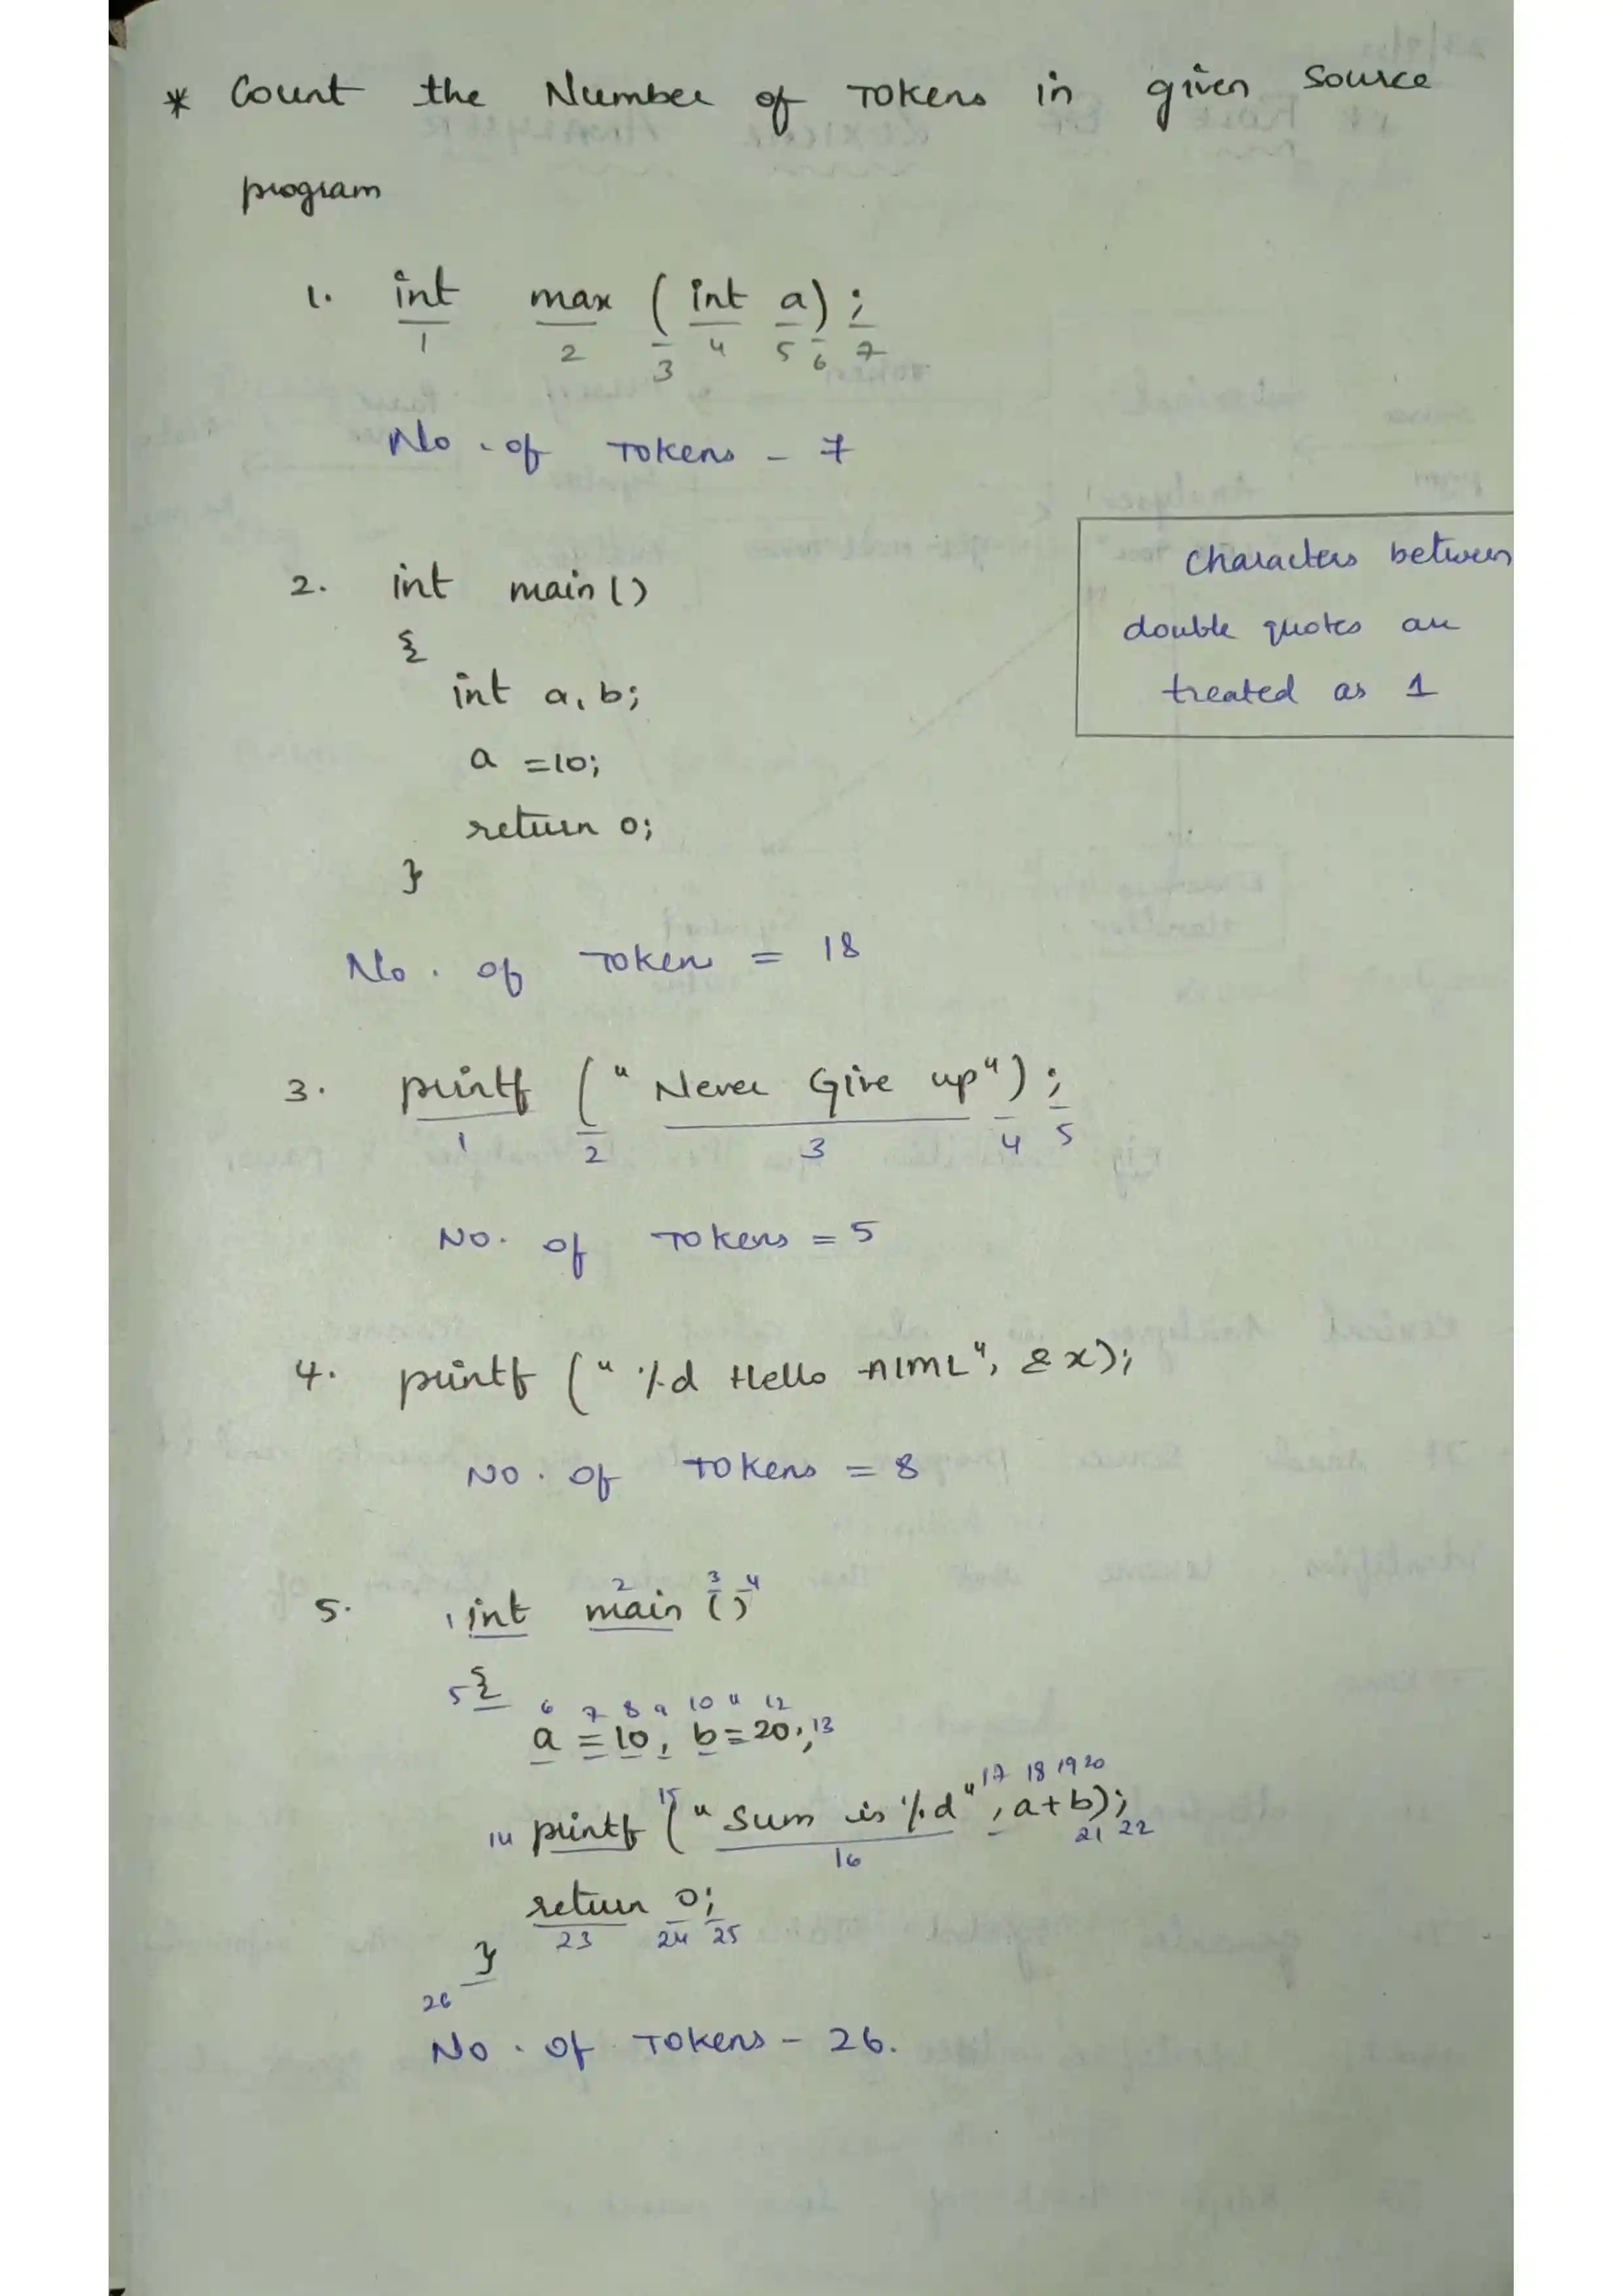 * Count the Number of Tokens in given Source
program
1. int max ( int a) ;
1 2 3 4 5 6 7
No. of Tokens - 7
2. int main ()
{
int a, b;
a =10;
return 0;
}
Characters between
double quotes are
treated as 1
No. of Tokens = 18
3. printf (" Never Give up") ;
1 2 3 4 5
No. of Tokens = 5
4. printf (" %d Hello AIML", & x);
No. of Tokens = 8
2 3 4
5. 1 int main ()
5 {
6 7 8 9 10 11 12
a = 10, b = 20; 13
15 17 18 19 20
14 printf (" Sum is %d" , a+b);
16 21 22
return 0;
23 24 25
}
26
No. of Tokens - 26.